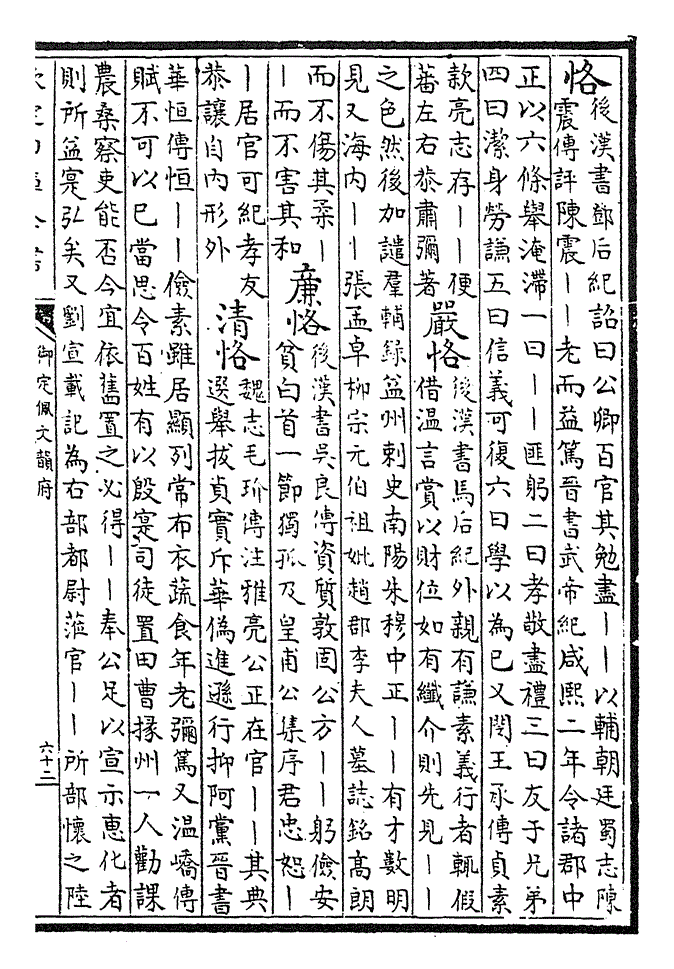 恪
後漢書鄧后紀詔曰公卿百官其勉盡——以輔朝廷蜀志陳
震傳評陳震——老而益篤晉書武帝紀咸熙二年令諸郡中
正以六條舉淹滯一曰——匪躬二曰孝敬盡禮三曰友于兄弟
四曰潔身勞謙五曰信義可復六曰學以為已又閔王承傳貞素
款亮志存——便
蕃左右恭肅彌著
嚴恪
後漢書馬后紀外親有謙素義行者輒假
借温言賞以財位如有纖介則先見——
之色然後加譴羣輔録益州刺史南陽朱穆中正——有才數明
見又海内——張孟卓柳宗元伯祖妣趙郡李夫人墓誌銘髙朗
而不傷其柔—
—而不害其和
亷恪
後漢書吳良傳資質敦固公方——躬儉安
貧白首一節獨孤及皇甫公集序君忠恕—
—居官可紀孝友
恭讓自内形外
清恪
魏志毛玠傳注雅亮公正在官——其典
選舉拔貞實斥華偽進遜行抑阿黨晉書
華恒傳恒——儉素雖居顯列常布衣蔬食年老彌篤又温嶠傳
賦不可以已當思令百姓有以殷寔司徒置田曹掾州一人勸課
農桑察吏能否今宜依舊置之必得——奉公足以宣示惠化者
則所益寔弘矣又劉宣載記為右部都尉蒞官——所部懷之陸
御定佩文韻府
六十二